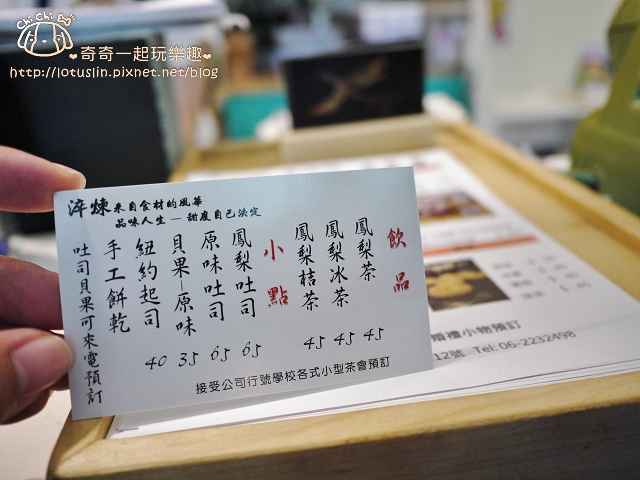 Chi Chi
❤奇奇一起玩樂趣❤
http://lotuslin.pixnet.net/blog
淬煉 來自食材的風華
品味人生 — 甜度自己決定
飲品
鳳梨茶 45
鳳梨冰茶 45
鳳梨桔茶 45
小點
鳳梨吐司 65
原味吐司 65
貝果—原味 35
紐約起司 40
手工餅乾
吐司貝果可來電預訂
接受公司行號學校各式小型茶會預訂
婚禮小物預訂
12號 Tel: 06-2232498